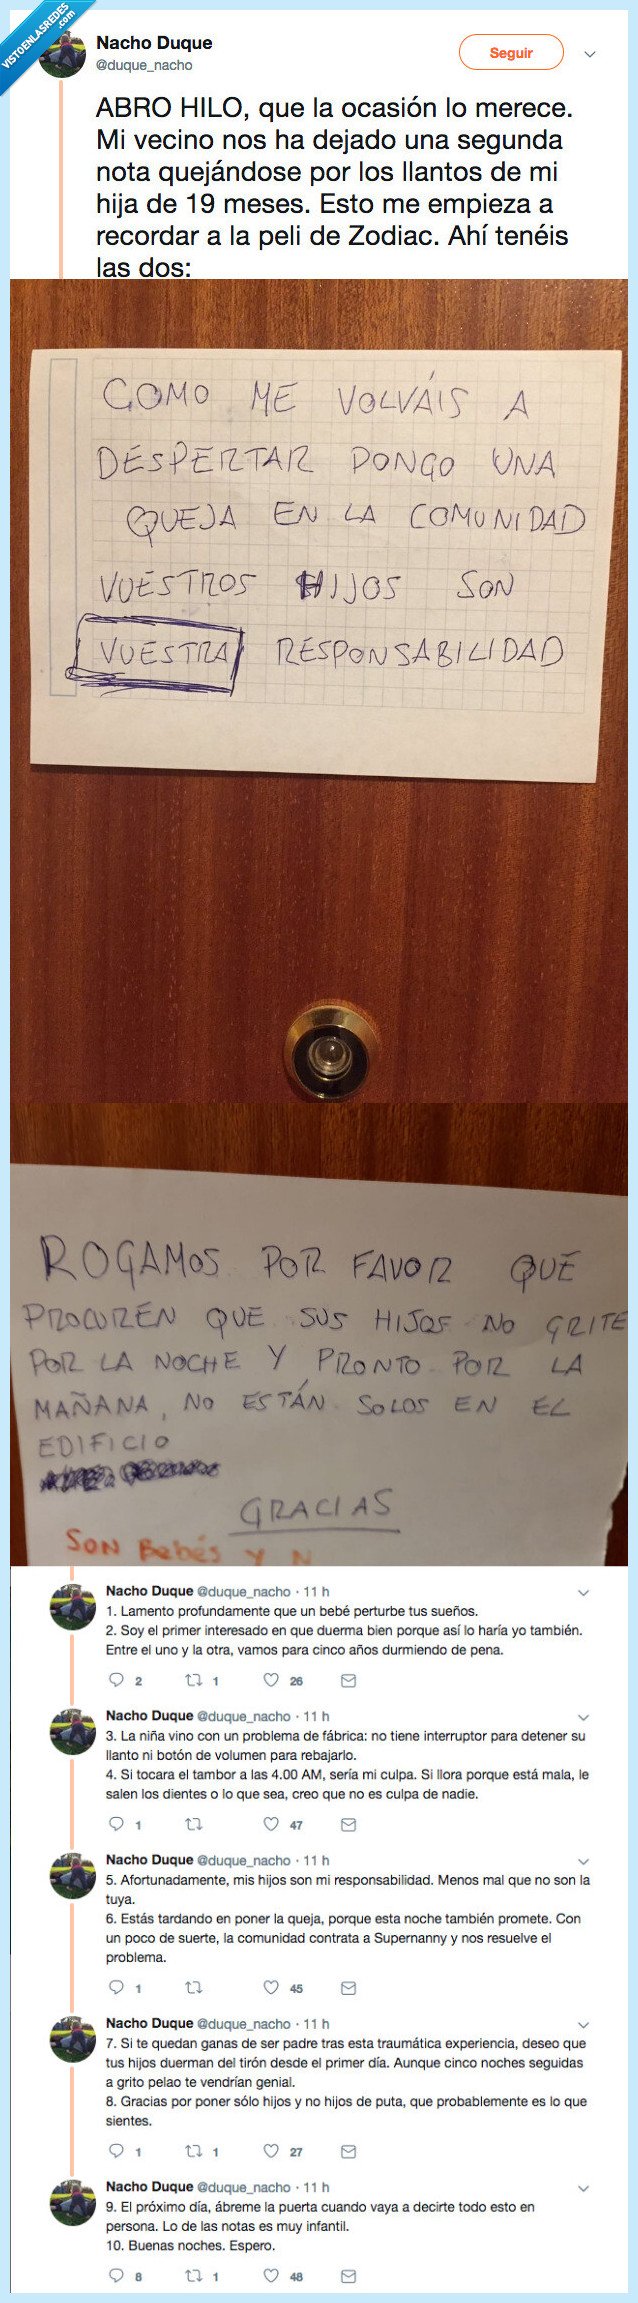 VISTOENLASREDES
.com
Nacho Duque
@duque_nacho
Seguir
ABRO HILO, que la ocasión lo merece.
Mi vecino nos ha dejado una segunda
nota quejándose por los llantos de mi
hija de 19 meses. Esto me empieza a
recordar a la peli de Zodiac. Ahí tenéis
las dos:
COMO ME VOLVÁIS A
DESPERTAR PONGO UNA
QUEJA EN LA COMUNIDAD
VUESTROS HIJOS SON
VUESTRA RESPONSABILIDAD
ROGAMOS POR FAVOR QUE
PROCUREN QUE SUS HIJOS NO GRITE
POR LA NOCHE Y PRONTO POR LA
MAÑANA, NO ESTÁN SOLOS EN EL
EDIFICIO
GRACIAS
SON BEBÉS Y N
Nacho Duque @duque_nacho · 11 h
1. Lamento profundamente que un bebé perturbe tus sueños.
2. Soy el primer interesado en que duerma bien porque así lo haría yo también.
Entre el uno y la otra, vamos para cinco años durmiendo de pena.
2 1 26
Nacho Duque @duque_nacho · 11 h
3. La niña vino con un problema de fábrica: no tiene interruptor para detener su
llanto ni botón de volumen para rebajarlo.
4. Si tocara el tambor a las 4.00 AM, sería mi culpa. Si llora porque está mala, le
salen los dientes o lo que sea, creo que no es culpa de nadie.
1 47
Nacho Duque @duque_nacho · 11 h
5. Afortunadamente, mis hijos son mi responsabilidad. Menos mal que no son la
tuya.
6. Estás tardando en poner la queja, porque esta noche también promete. Con
un poco de suerte, la comunidad contrata a Supernanny y nos resuelve el
problema.
1 45
Nacho Duque @duque_nacho · 11 h
7. Si te quedan ganas de ser padre tras esta traumática experiencia, deseo que
tus hijos duerman del tirón desde el primer día. Aunque cinco noches seguidas
a grito pelao te vendrían genial.
8. Gracias por poner sólo hijos y no hijos de puta, que probablemente es lo que
sientes.
1 1 27
Nacho Duque @duque_nacho · 11 h
9. El próximo día, ábreme la puerta cuando vaya a decirte todo esto en
persona. Lo de las notas es muy infantil.
10. Buenas noches. Espero.
8 1 48